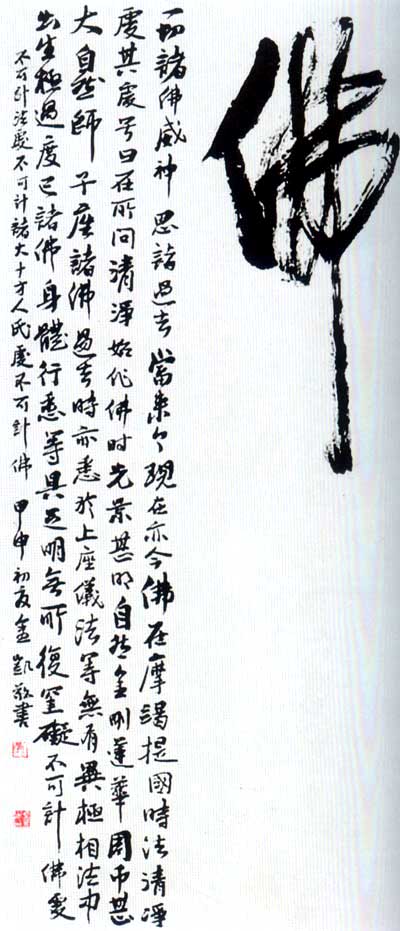 佛
一切諸佛威神恩諸過去當来今現在亦令佛在摩竭提國時法清淨
處其處号曰在所问清淨始作佛时光景甚明自然金剛蓮華周帀甚
大自然師子座諸佛過去時亦悉於上座儀法等無有異極相法中
出生極過度已諸佛身體行悉等具足明無所復罣礙不可計佛處
不可計法處不可計諸大十方人民處不可計佛 甲申初夏金凱敬書